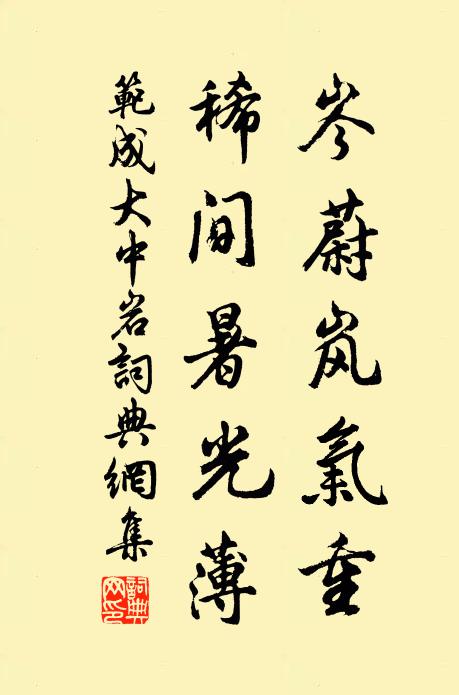 岑蔚岚氣重
稀间暑光薄
範成大中岩詞典網集
詞典网印